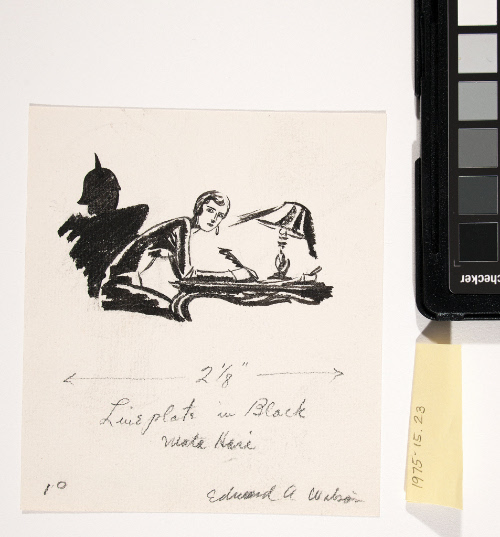 2 1/8"
Line plate in Black
Mata Hari
10
Edward A Wilson
1975-15.23
checker